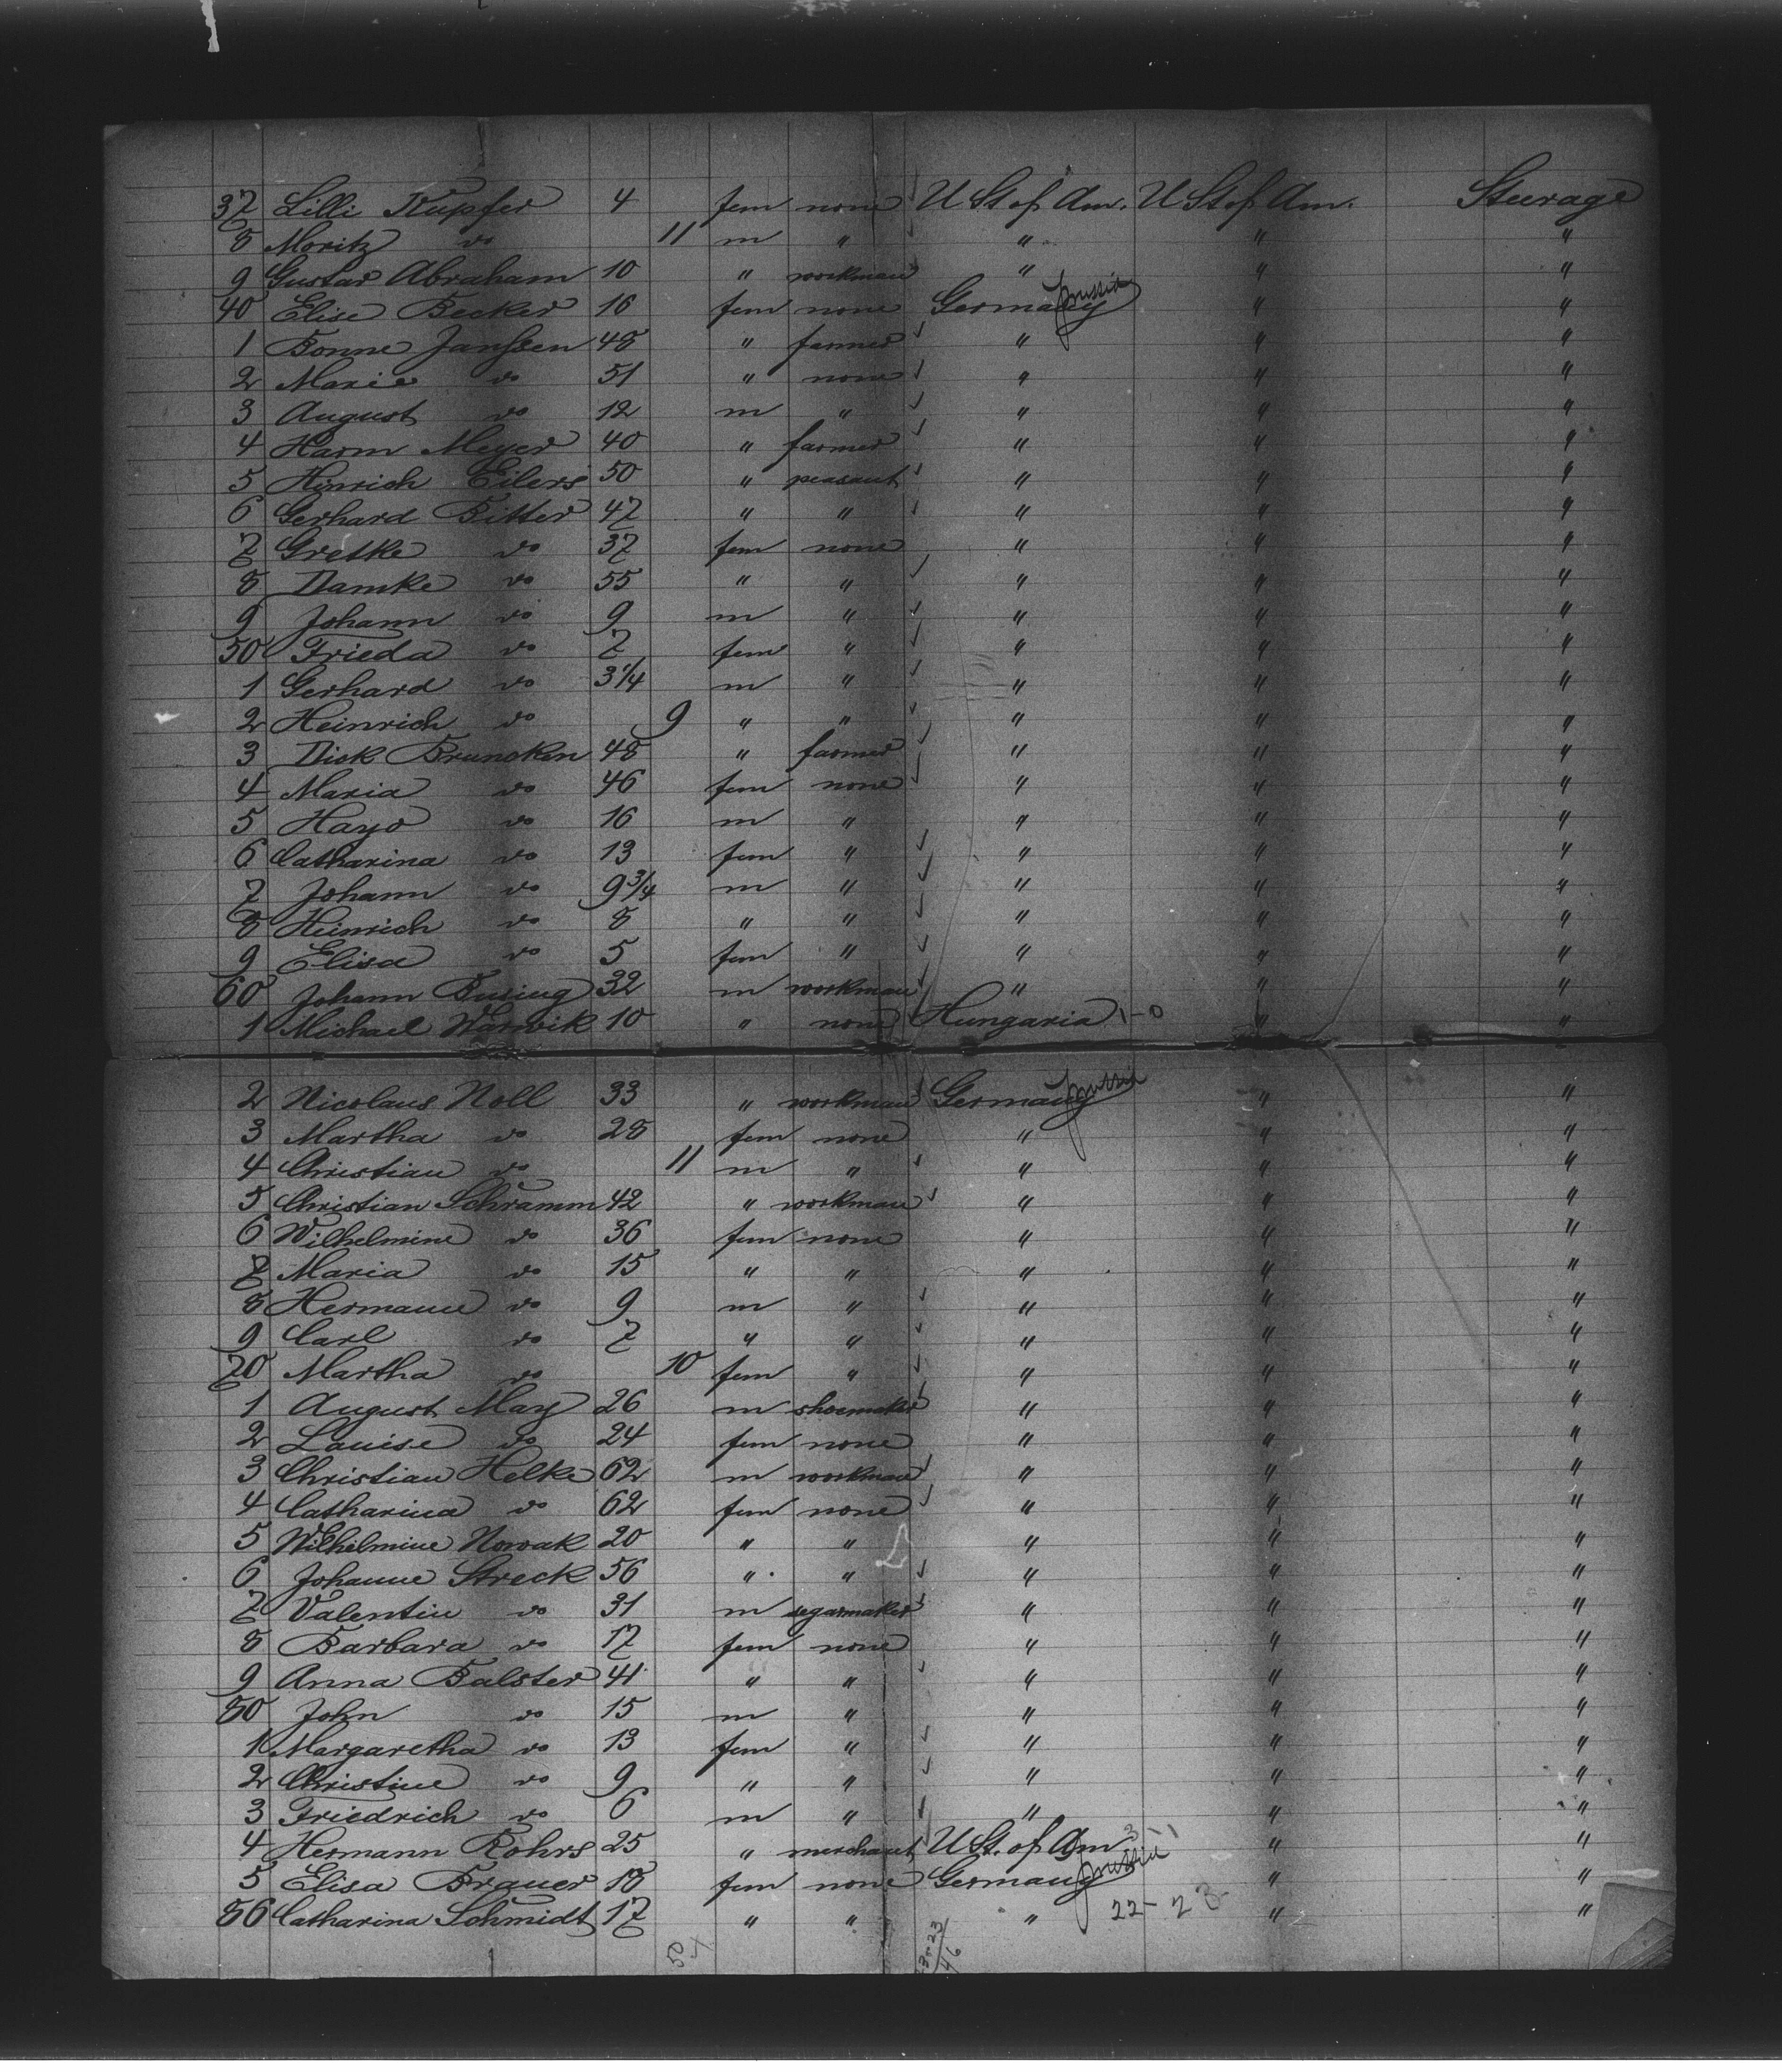 37 Lilli Kupfer 4 fem none U St of Am. U St of Am. Steerage
8 Moritz do 11 m " " " "
9 Gustav Abraham 10 " workman " " "
40 Elise Becker 16 fem none Germany Prussia " "
1 Bonne Janssen 48 " farmer " " "
2 Marie do 51 " none " " "
3 August do 12 m " " " "
4 Harm Meyer 40 " farmer " " "
5 Hinrich Eilers 50 " peasant " " "
6 Gerhard Bitter 47 " " " " "
7 Gretke do 37 fem none " " "
8 Damke do 55 " " " " "
9 Johann do 9 m " " " "
50 Frieda do 7 fem " " " "
1 Gerhard do 3 1/4 m " " " "
2 Heinrich do 9 " " " " "
3 Dick Bruncken 48 " farmer " " "
4 Maria do 46 fem none " " "
5 Hayo do 16 m " " " "
6 Catharina do 13 fem " " " "
7 Johann do 9 3/4 m " " " "
8 Heinrich do 8 " " " " "
9 Elisa do 5 fem " " " "
60 Johann Busing 32 m workman " " "
1 Michael Warwik 10 " none Hungaria 1-0 " "
2 Nicolaus Noll 33 " workman Germany Prussia " "
3 Martha do 28 fem none " " "
4 Christian do 11 m " " " "
5 Christian Schramm 42 " workman " " "
6 Wilhelmine do 36 fem none " " "
7 Maria do 15 " " " " "
8 Hermann do 9 m " " " "
9 Carl do 7 " " " " "
70 Martha do 10 fem " " " "
1 August May 26 m shoemaker " " "
2 Louise do 24 fem none " " "
3 Christian Helke 62 m workman " " "
4 Catharina do 62 fem none " " "
5 Wilhelmine Nowak 20 " " " " "
6 Johanne Streck 56 " " " " "
7 Valentin do 31 m segarmaker " " "
8 Barbara do 17 fem none " " "
9 Anna Balster 41 " " " " "
80 John do 15 m " " " "
1 Margaretha do 13 fem " " " "
2 Christine do 9 " " " " "
3 Friedrich do 6 m " " " "
4 Hermann Rohrs 25 " merchant U St. of Am 3 " "
5 Elisa Brauer 18 fem none Germany Prussia " "
86 Catharina Schmidt 17 " " " 22-23 " "
50 23-23
46